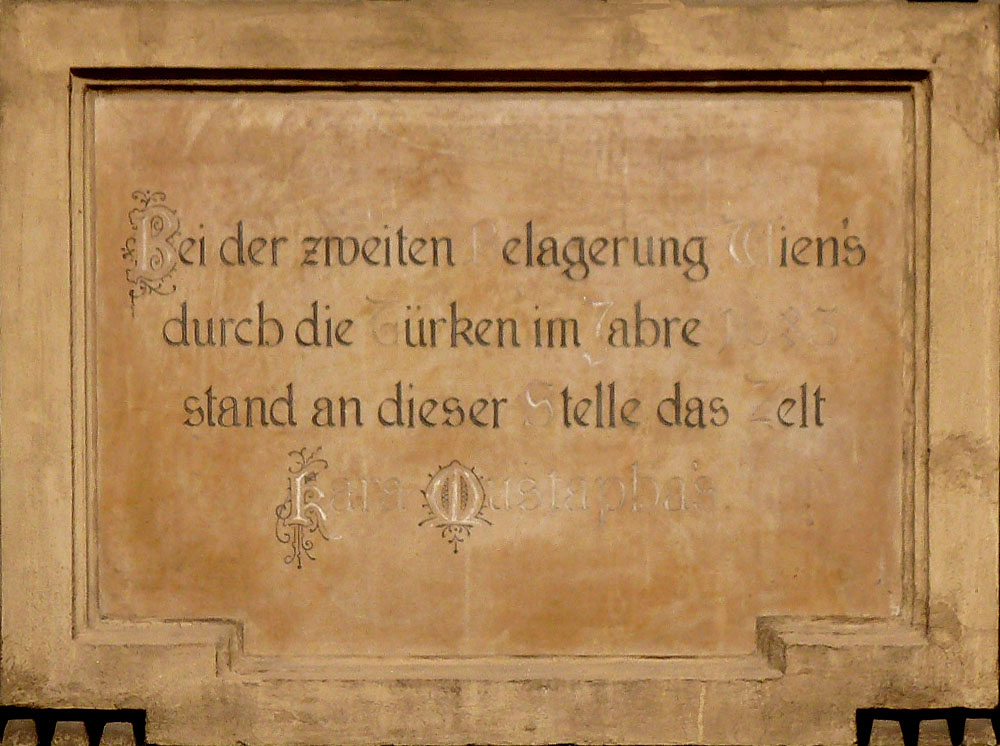 Bei der zweiten Belagerung Wien's
durch die Türken im Jahre 1683
stand an dieser Stelle das Zelt
Kara Mustapha's